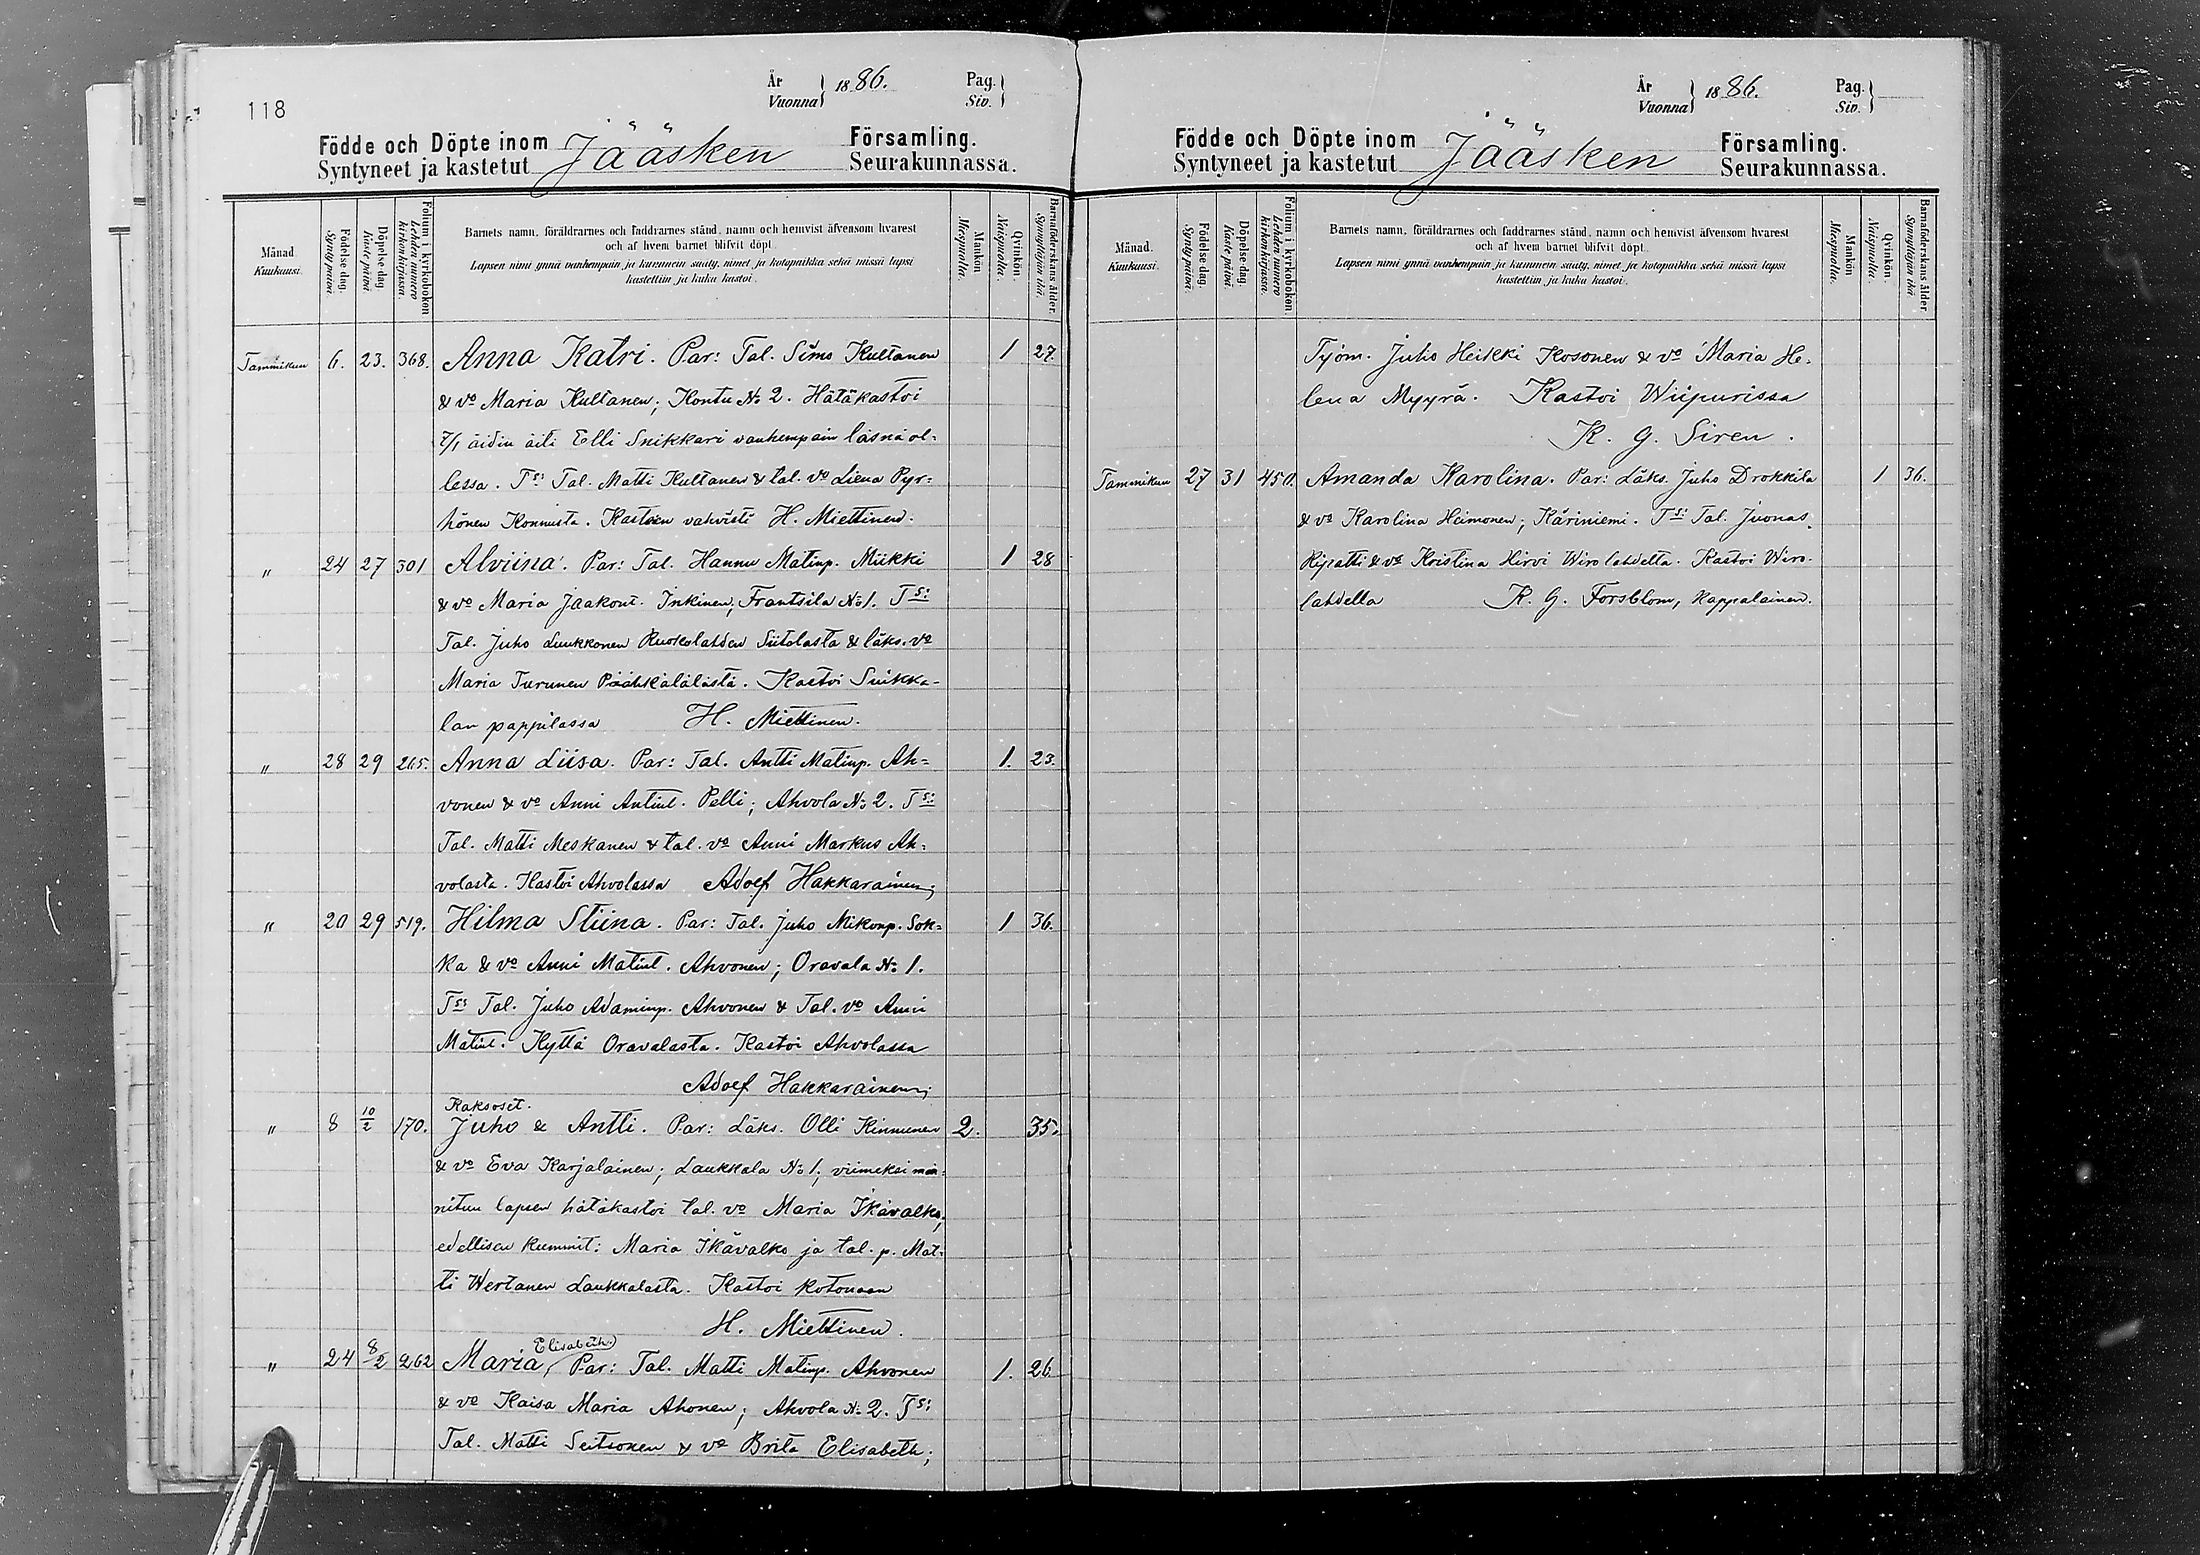 118
År Vuonna } 1886. Pag. Siv. }
Födde och Döpte inom Syntyneet ja kastetut Jääsken Församling. Seurakunnassa.
Månad. Kuukausi.
Födelse dag. Synty päivä.
Döpelse dag. Kaste päivä.
Folium i kyrkobokon Lehden numero kirkonkirjassa.
Barnets namn, föräldrarnes och faddrarnes stånd, namn och hemvist äfvensom hvarest
och af hvem barnet blifvit döpt.
Lapsen nimi ynnä vanhempain ja kummein sääty, nimet ja kotopaikka sekä missä lapsi
kastettiin ja kuka kastoi.
Mankön Miespuolta.
Qvinkön. Naispuolta.
Barnaföderskans ålder. Synnyttäjän ikä.
Tammikuu 6. 23. 368. Anna Katri. Par: Tal. Simo Kultanen 1 27.
& vo Maria Kultanen; Kontu No 2. Hätäkastoi
7/1 äidin äiti Elli Snikkari vanhempain läsnä ol-
lessa. Ts: Tal. Matti Kultanen & tal. vo Liena Pyr-
hönen Konnusta. Kasteen vahvisti H. Miettinen.
" 24 27 301 Alviina. Par: Tal. Hannu Matinp. Miikki 1 28
& vo Maria Jaakont. Inkinen; Frantsila No 1. Ts:
Tal. Juho Luukkonen Ruokolahden Siitolasta & läks. vo
Maria Turunen Päähkälälästä. Kastoi Suikka-
lan pappilassa H. Miettinen.
" 28 29 265. Anna Liisa. Par: Tal. Antti Matinp. Ah- 1. 23.
vonen & vo Anni Antint. Pelli; Ahvola No 2. Ts:
Tal. Matti Meskanen & tal. vo Anni Markus Ah-
volasta. Kastoi Ahvolassa Adolf Hakkarainen;
" 20 29 519. Hilma Stiina. Par: Tal. Juho Mikonp. Sok- 1 36.
ka & vo Anni Matint. Ahvonen; Oravala No 1.
Ts: Tal. Juho Adaminp. Ahvonen & Tal. vo Anni
Matint. Kyttä Oravalasta. Kastoi Ahvolassa
Adolf Hakkarainen;
Kaksoset.
" 8 10/2 170. Juho & Antti. Par: Läks. Olli Kinnunen 2. 35.
& vo Eva Karjalainen; Laukkala No 1; viimeksi mai-
nitun lapsen hätäkastoi tal. vo Maria Ikävalko;
edellisen kummit: Maria Ikävalko ja tal. p. Mat-
ti Wertanen Laukkalasta. Kastoi kotonaan
H. Miettinen.
Elisabeth.
" 24 8/2 262 Maria, Par: Tal. Matti Matinp. Ahvonen 1. 26.
& vo Kaisa Maria Ahonen; Ahvola No 2. Ts:
Tal. Matti Seitsonen & vo Brita Elisabeth;
År Vuonna } 1886. Pag. Siv. }
Födde och Döpte inom Syntyneet ja kastetut Jääsken Församling. Seurakunnassa.
Månad. Kuukausi.
Födelse dag. Synty päivä.
Döpelse dag. Kaste päivä.
Folium i kyrkobokon Lehden numero kirkonkirjassa.
Barnets namn, föräldrarnes och faddrarnes stånd, namn och hemvist äfvensom hvarest
och af hvem barnet blifvit döpt.
Lapsen nimi ynnä vanhempain ja kummein sääty, nimet ja kotopaikka sekä missä lapsi
kastettiin ja kuka kastoi.
Mankön Miespuolta.
Qvinkön. Naispuolta.
Barnaföderskans ålder Synnyttäjän ikä
Työm. Juho Heikki Kosonen & vo Maria He-
lena Myyrä. Kastoi Wiipurissa
K. G. Siren.
Tammikuu 27 31 450. Amanda Karolina. Par: Läks. Juho Drokkila 1 36.
& vo Karolina Heimonen; Käriniemi. Ts: Tal. Juonas
Ripatti & vo Kristina Hirvi Wirolahdelta. Kastoi Wiro-
lahdella K. G. Forsblom, Kappalainen.